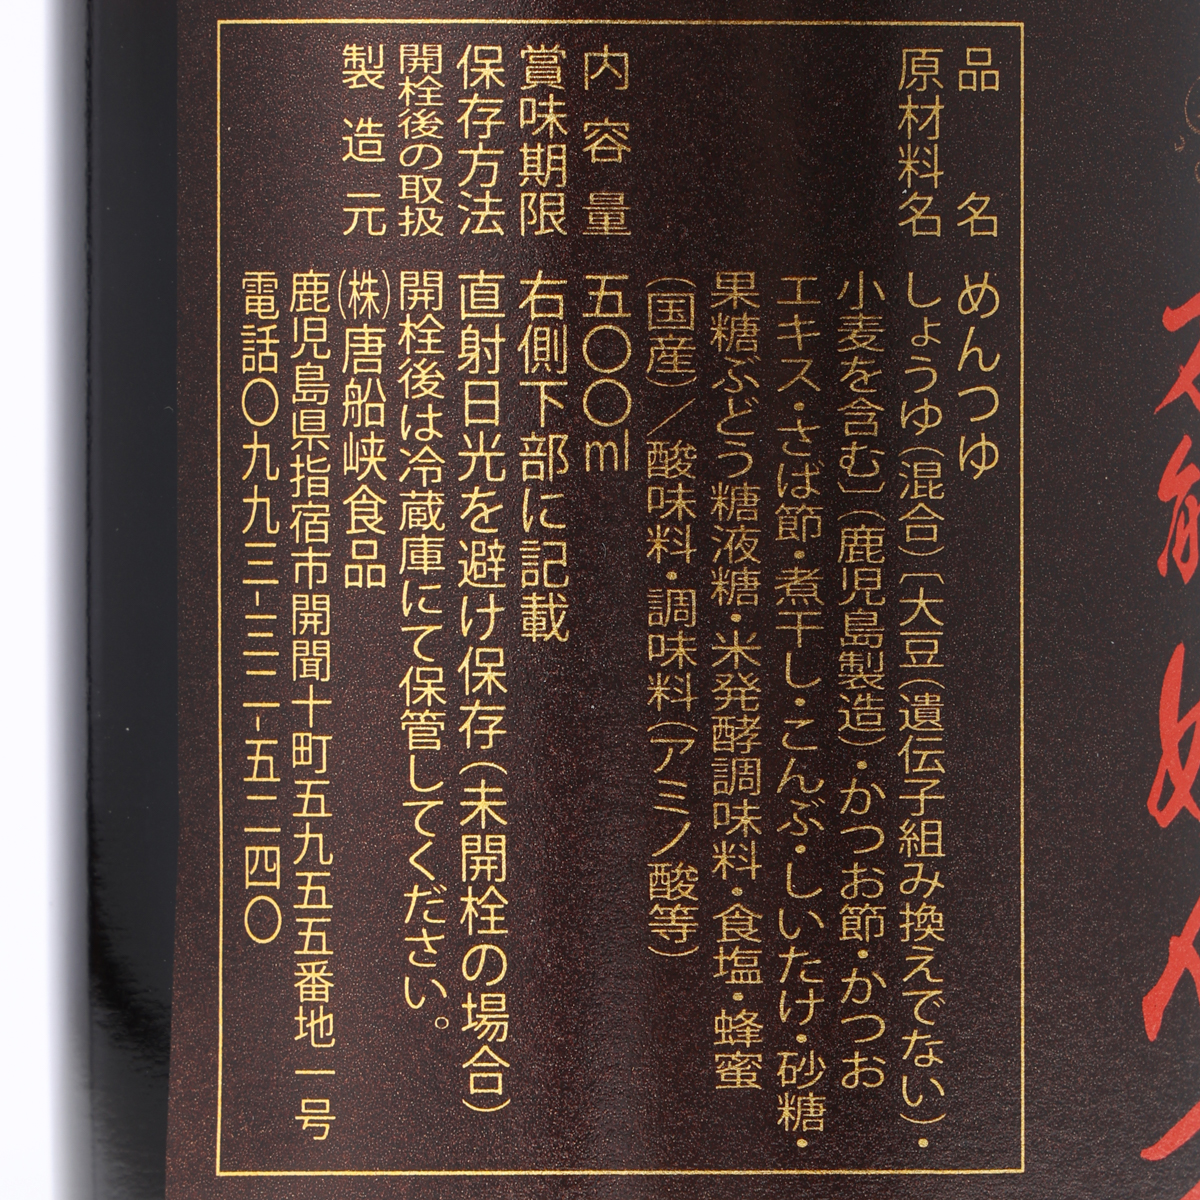 品名 めんつゆ
原材料名 しょうゆ(混合)〔大豆(遺伝子組み換えでない)・
小麦を含む〕(鹿児島製造)・かつお節・かつお
エキス・さば節・煮干し・こんぶ・しいたけ・砂糖・
果糖ぶどう糖液糖・米発酵調味料・食塩・蜂蜜
(国産)／酸味料・調味料(アミノ酸等)
内容量 五〇〇ml
賞味期限 右側下部に記載
保存方法 直射日光を避け保存(未開栓の場合)
開栓後の取扱 開栓後は冷蔵庫にて保管してください。
製造元 ㈱唐船峡食品
鹿児島県指宿市開聞十町五九五五番地一号
電話〇九九三-三二-五二四〇